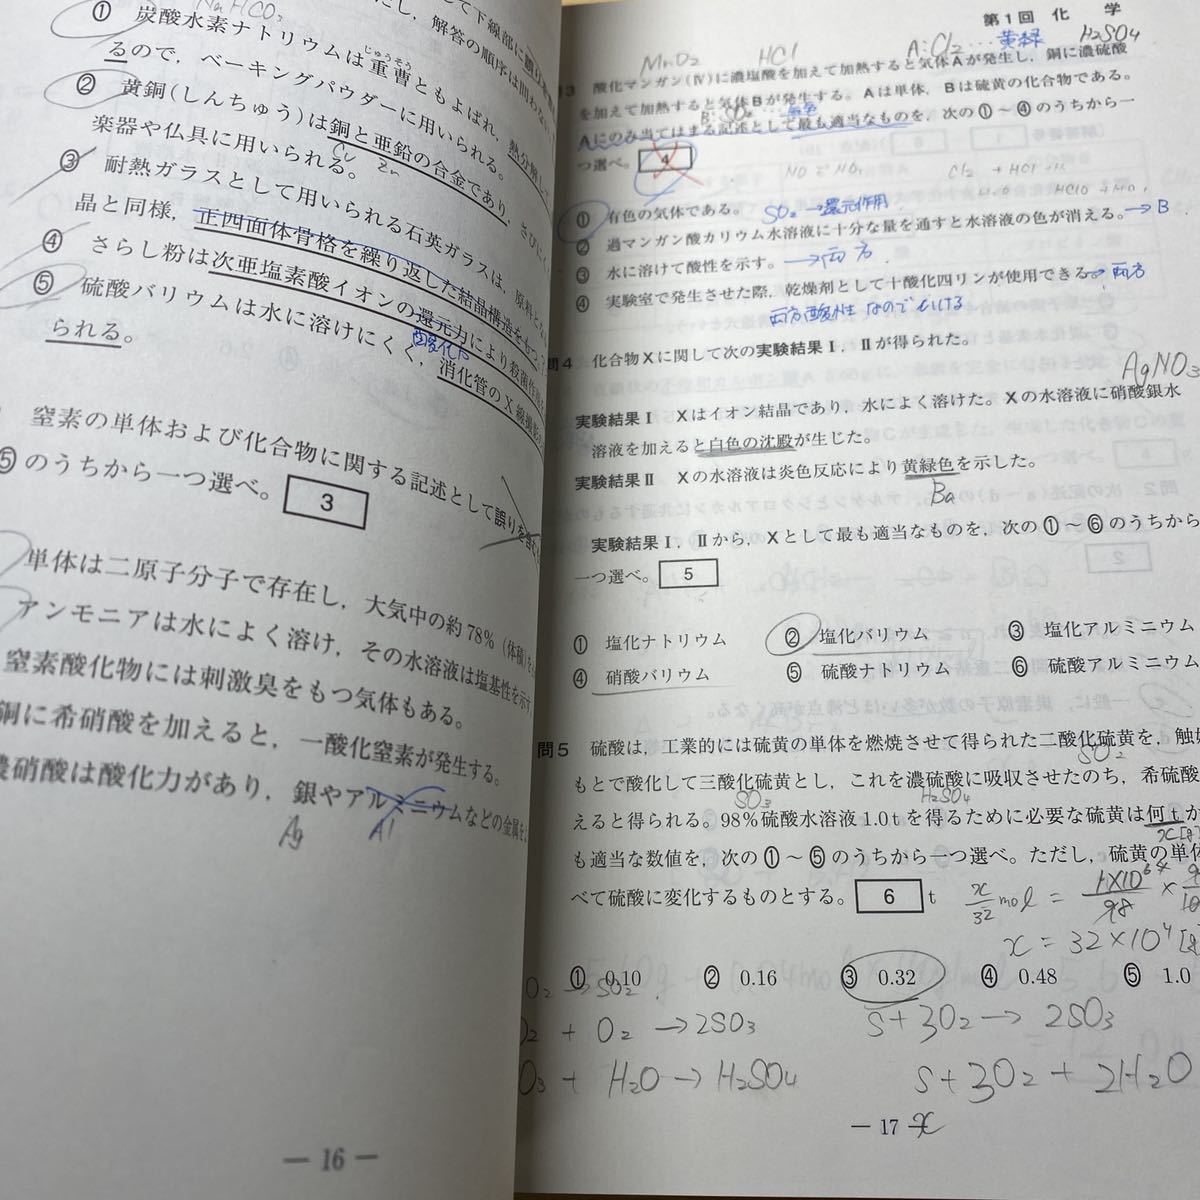 NaHCO₃
して下線部に
① 炭酸水素ナトリウムは重曹ともよばれ，熱分解
じゅうそう
るので，ベーキングパウダーに用いられる。
② 黄銅(しんちゅう)は銅と亜鉛の合金であり，さびにく
Cu Zn
楽器や仏具に用いられる。
③ 耐熱ガラスとして用いられる石英ガラスは，原料となる
晶と同様，正四面体骨格を繰り返した結晶構造をもつ
④ さらし粉は次亜塩素酸イオンの還元力により殺菌作用
酸化力
⑤ 硫酸バリウムは水に溶けにくく，消化管のX線撮影の
られる。
窒素の単体および化合物に関する記述として誤りを含む
⑤のうちから一つ選べ。 3
単体は二原子分子で存在し，大気中の約78%(体積)を
アンモニアは水によく溶け，その水溶液は塩基性を示す
窒素酸化物には刺激臭をもつ気体もある。
銅に希硝酸を加えると，一酸化窒素が発生する。
濃硝酸は酸化力があり，銀やアルミニウムなどの金属を
Ag Al
— 16 —
第1回 化 学
MnO₂ HCl A:Cl₂…黄緑 H₂SO₄
酸化マンガン(Ⅳ)に濃塩酸を加えて加熱すると気体Aが発生し，銅に濃硫酸
を加えて加熱すると気体Bが発生する。Aは単体，Bは硫黄の化合物である。
B:SO₂
Aにのみ当てはまる記述として最も適当なものを，次の①～④のうちから一
つ選べ。 4
① 有色の気体である。 SO₂→還元作用
② 過マンガン酸カリウム水溶液に十分な量を通すと水溶液の色が消える。→B
③ 水に溶けて酸性を示す。→両方
④ 実験室で発生させた際，乾燥剤として十酸化四リンが使用できる→両方
問4 化合物Xに関して次の実験結果Ⅰ，Ⅱが得られた。
AgNO₃
実験結果Ⅰ Xはイオン結晶であり，水によく溶けた。Xの水溶液に硝酸銀水
溶液を加えると白色の沈殿が生じた。
実験結果Ⅱ Xの水溶液は炎色反応により黄緑色を示した。
Ba
実験結果Ⅰ，Ⅱから，Xとして最も適当なものを，次の①～⑥のうちから
一つ選べ。 5
① 塩化ナトリウム ② 塩化バリウム ③ 塩化アルミニウム
④ 硝酸バリウム ⑤ 硫酸ナトリウム ⑥ 硫酸アルミニウム
問5 硫酸は，工業的には硫黄の単体を燃焼させて得られた二酸化硫黄を，触媒
SO₂
もとで酸化して三酸化硫黄とし，これを濃硫酸に吸収させたのち，希硫酸
SO₃ H₂SO₄
えると得られる。98%硫酸水溶液1.0tを得るために必要な硫黄は何tか
も適当な数値を，次の①～⑤のうちから一つ選べ。ただし，硫黄の単体
べて硫酸に変化するものとする。 6 t x/32 mol = 1×10⁶/98 ×
x = 32×10⁴ [g]
① 0.10 ② 0.16 ③ 0.32 ④ 0.48 ⑤ 1.0
O₂ → SO₂
+ O₂ → 2SO₃ S + 3O₂ → 2SO₃
+ H₂O → H₂SO₄ S + 3O₂ + 2H₂O
— 17 —